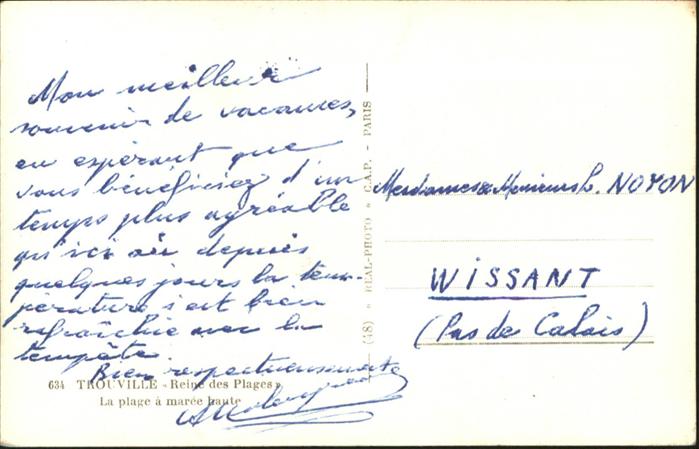 Mon meilleur
souvenir de vacances,
en espérant que
vous bénéficiez d'un
temps plus agréable
qu'ici où depuis
quelques jours la tem-
pérature s'est bien
rafraîchie avec la
tempête.
Bien respectueusement
634 TROUVILLE « Reine des Plages »
La plage à marée haute
(48) « REAL-PHOTO » C.A.P. - PARIS
Mesdames & Messieurs L. NOYON
WISSANT
(Pas de Calais)